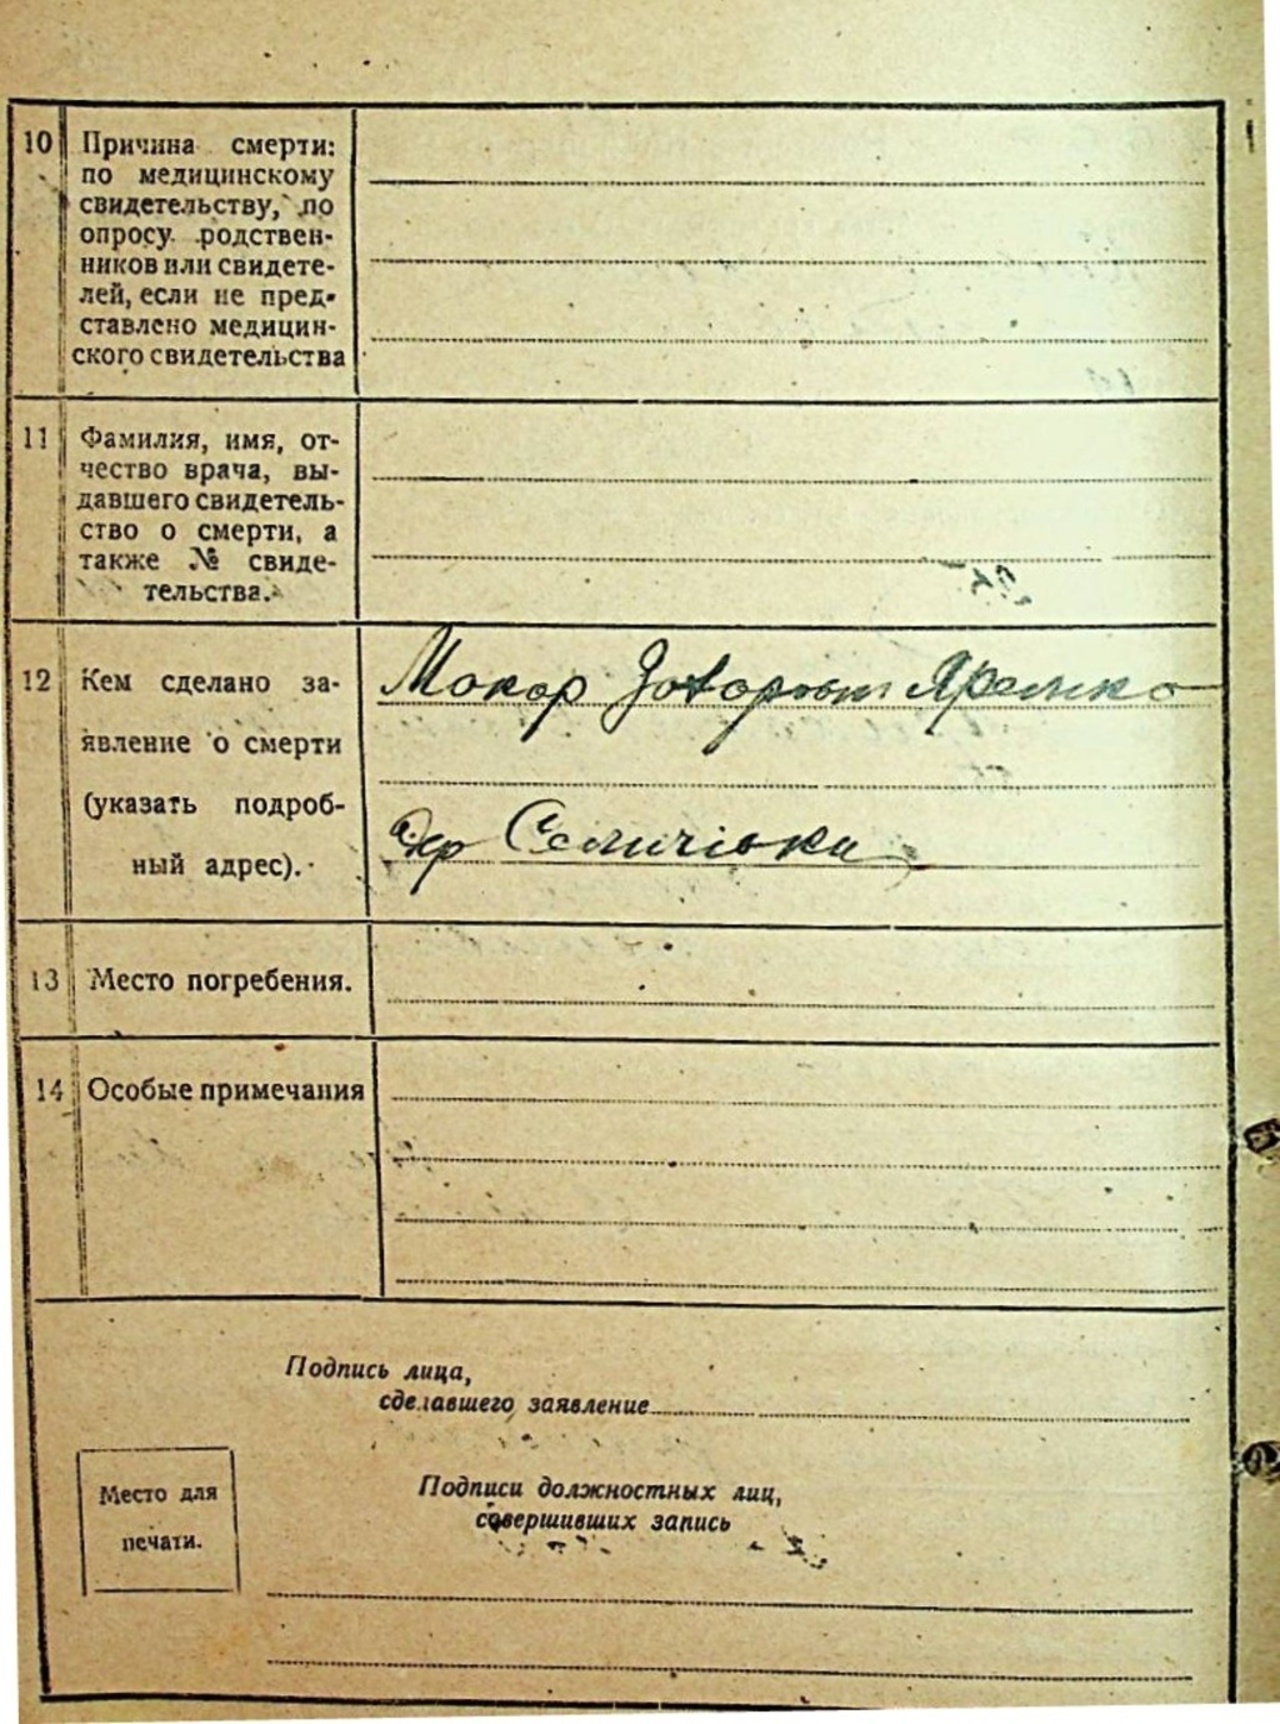 10 Причина смерти:
по медицинскому
свидетельству, по
опросу родствен-
ников или свидете-
лей, если не пред-
ставлено медицин-
ского свидетельства
11 Фамилия, имя, от-
чество врача, вы-
давшего свидетель-
ство о смерти, а
также № свиде-
тельства.
12 Кем сделано за-
явление о смерти
(указать подроб-
ный адрес).
Мокар Яремко
дер Селичівка
13 Место погребения.
14 Особые примечания
Подпись лица,
сделавшего заявление
Место для
печати.
Подписи должностных лиц,
совершивших запись